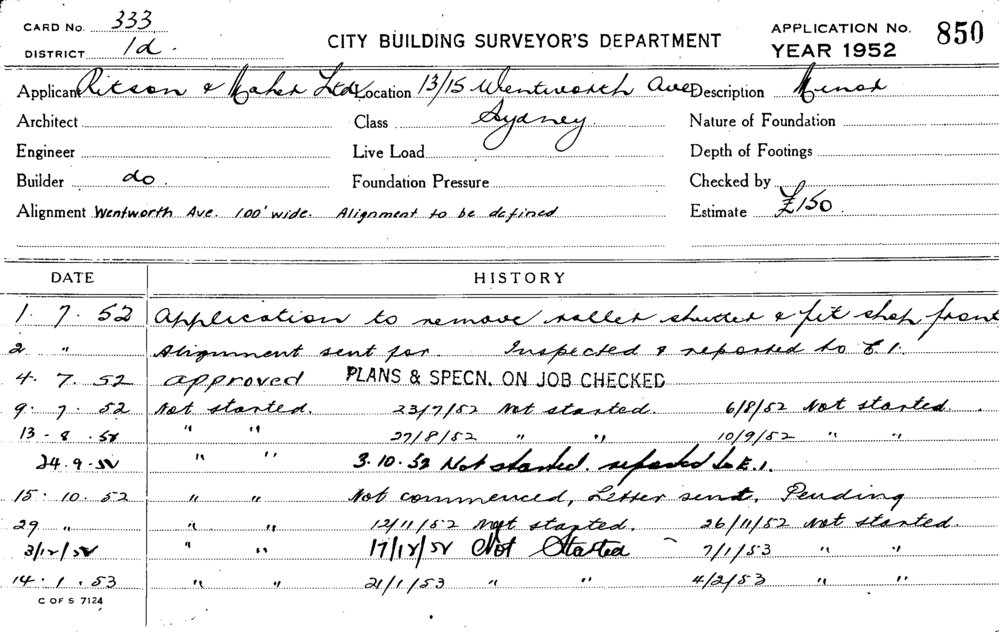 CARD No. 333
DISTRICT 1d.
CITY BUILDING SURVEYOR'S DEPARTMENT
APPLICATION No. 850
YEAR 1952
Applicant Ritson & Maher Ltd. Location 13/15 Wentworth Ave Description Minor
Architect Class Sydney. Nature of Foundation
Engineer Live Load Depth of Footings
Builder do. Foundation Pressure Checked by
Alignment Wentworth Ave. 100' wide. Alignment to be defined Estimate £150.
DATE HISTORY
1. 7. 52 Application to remove roller shutter & fit shop front
2 " Alignment sent for. Inspected & reported to E.I.
4. 7. 52 approved PLANS & SPECN. ON JOB CHECKED
9. 7. 52 Not started. 23/7/52 Not started. 6/8/52 Not started.
13. 8. 52 " " 27/8/52 " " 10/9/52 " "
24. 9. 52 " " 3.10.52 Not started. reported to E.I.
15. 10. 52 " " Not commenced, Letter sent, Pending
29 " " " 12/11/52 Not started. 26/11/52 Not started.
3/12/52 " " 17/12/52 Not Started 7/1/53 " "
14. 1. 53 " " 21/1/53 " " 4/2/53 " "
C OF S 7124